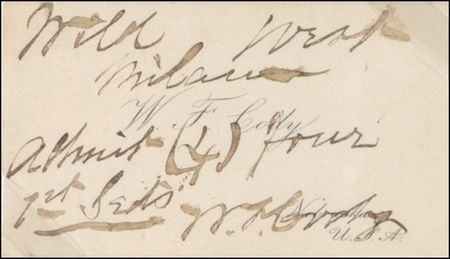 Wild West
Milan
W. F. Cody
Admit (4) four
1st Seats
W. F. Cody
U.S.A.